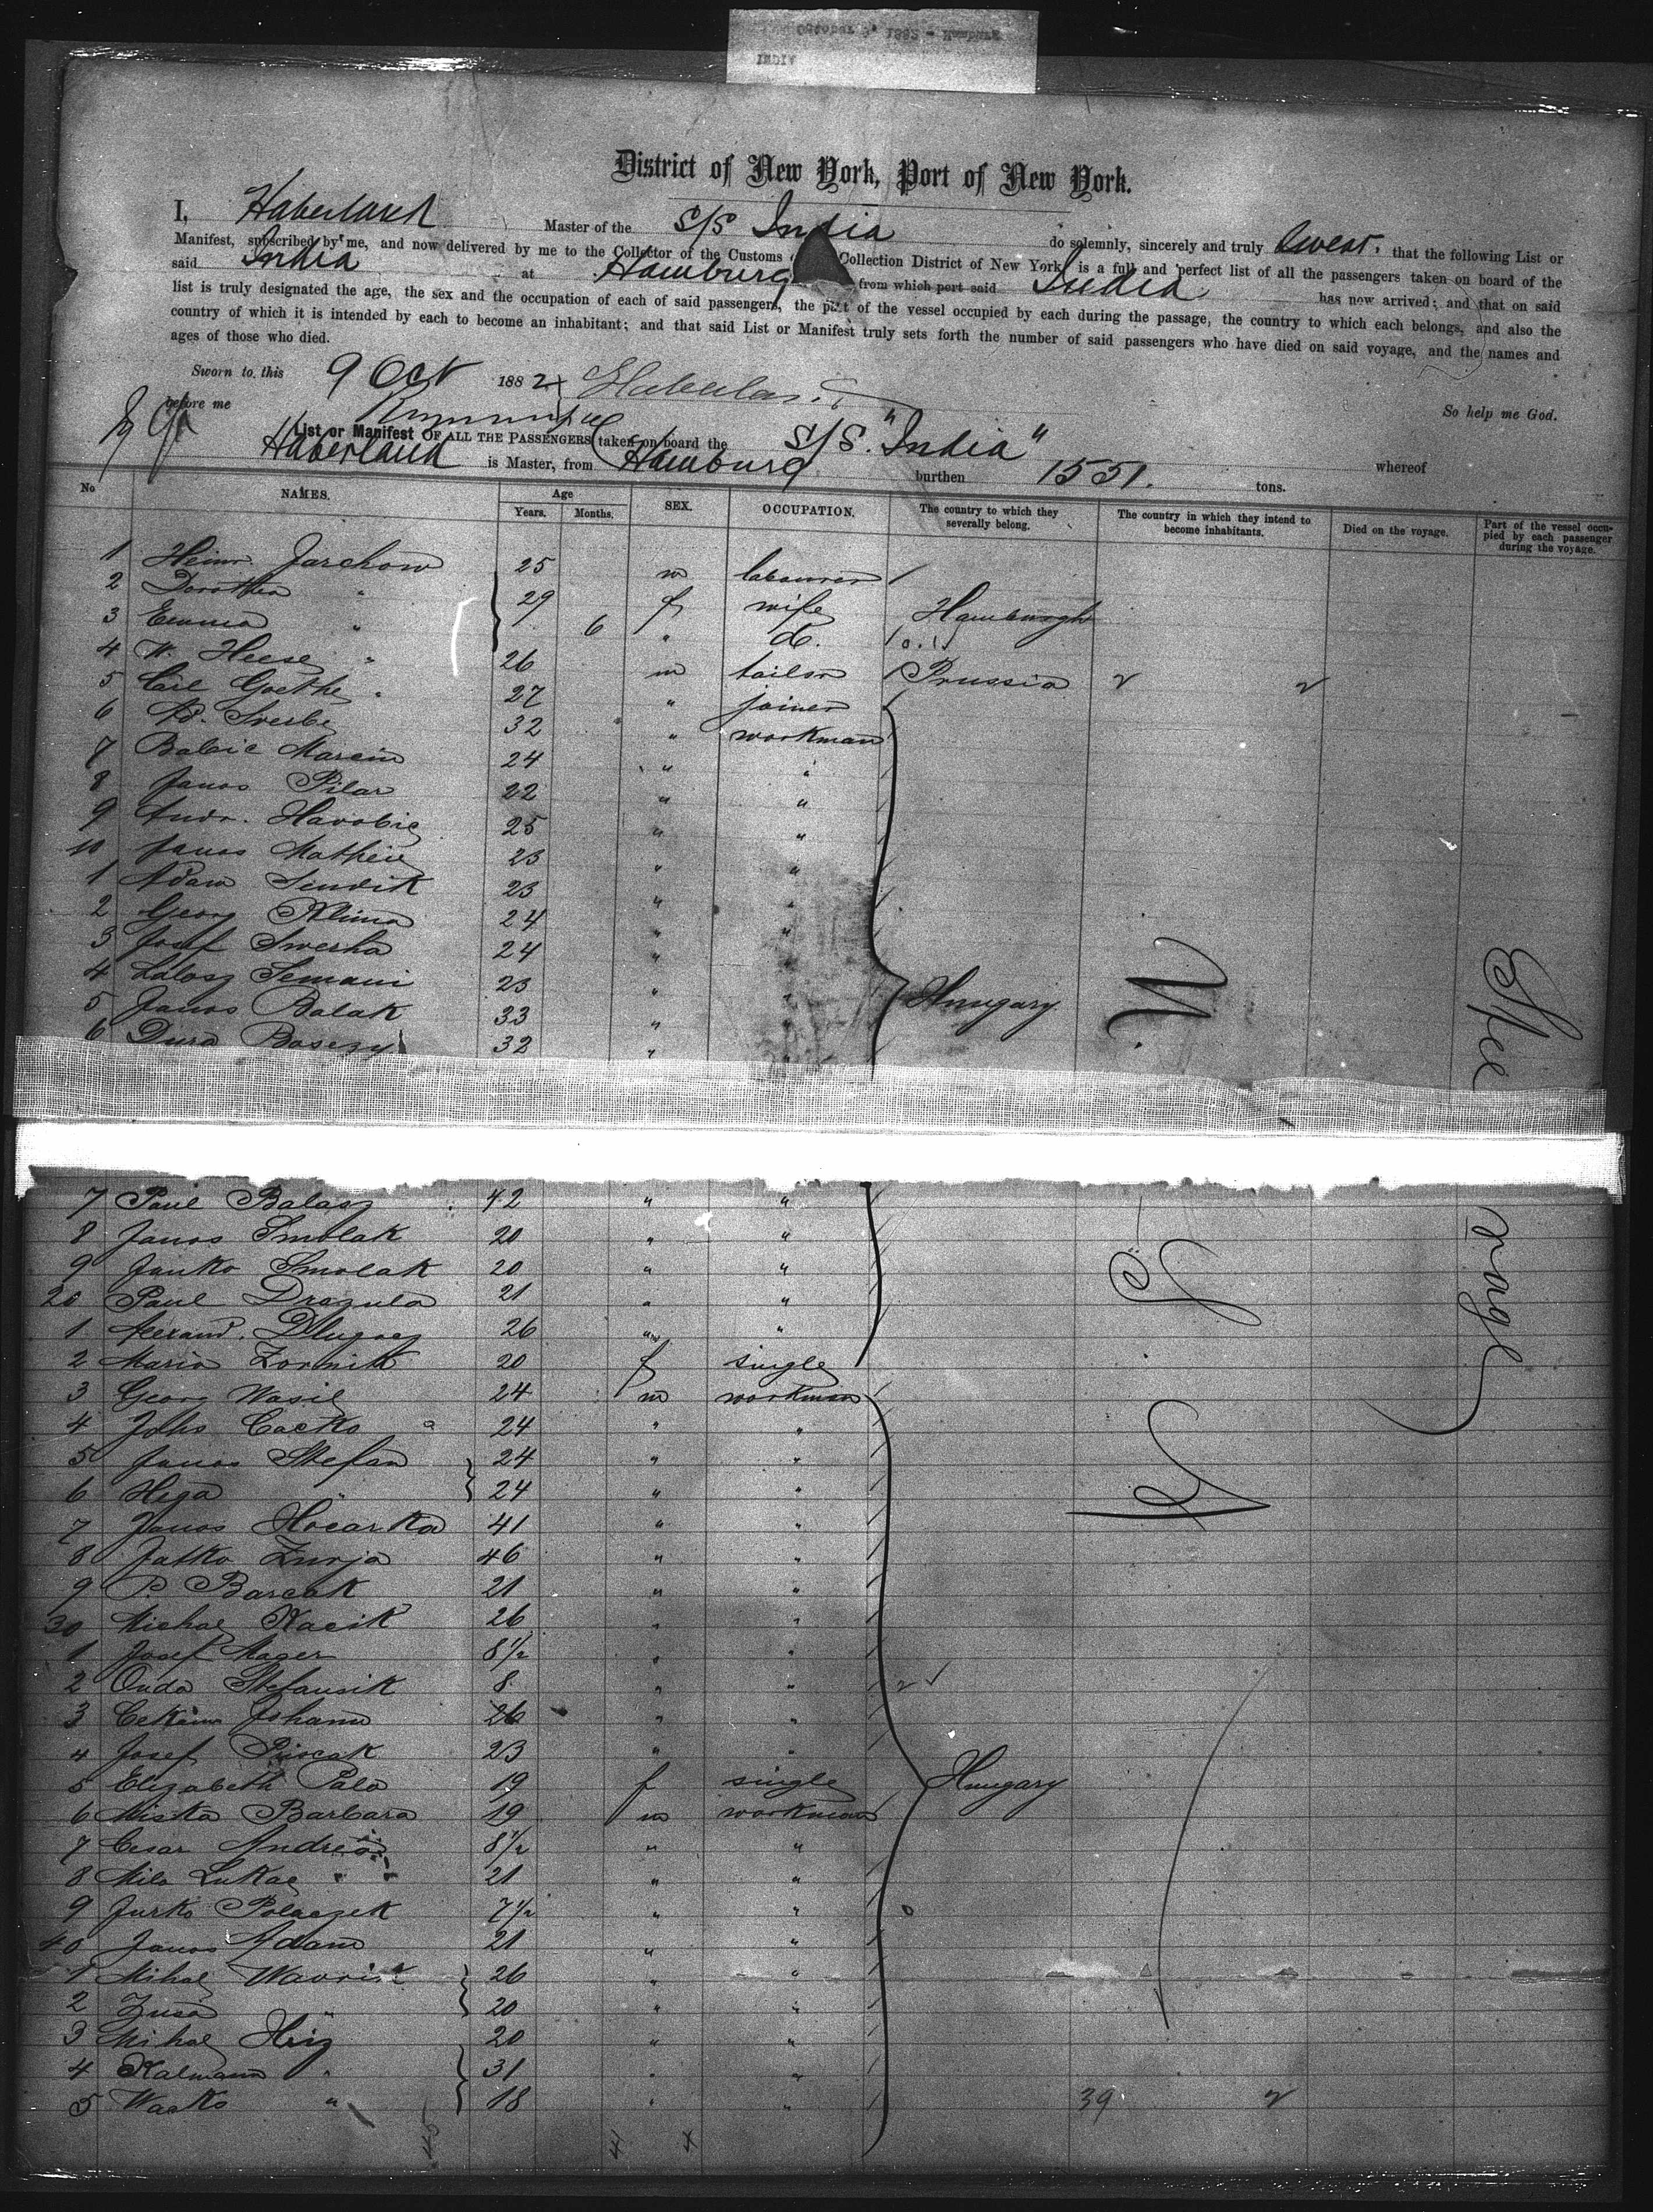 October 9, 1882 - Hamburg
INDIA
District of New York, Port of New York.
I, Haberland Master of the S/S India do solemnly, sincerely and truly swear, that the following List or
Manifest, subscribed by me, and now delivered by me to the Collector of the Customs Collection District of New York, is a full and perfect list of all the passengers taken on board of the
said India at Hamburg from which port said India has now arrived; and that on said
list is truly designated the age, the sex and the occupation of each of said passengers, the part of the vessel occupied by each during the passage, the country to which each belongs, and also the
country of which it is intended by each to become an inhabitant; and that said List or Manifest truly sets forth the number of said passengers who have died on said voyage, and the names and
ages of those who died.
Sworn to this 9 Oct 1882 Haberland So help me God.
before me
List or Manifest OF ALL THE PASSENGERS taken on board the S/S. "India" whereof
Haberland is Master, from Hamburg burthen 1551. tons.
No NAMES. Age Years. Months. SEX. OCCUPATION. The country to which they severally belong. The country in which they intend to become inhabitants. Died on the voyage. Part of the vessel occupied by each passenger during the voyage.
1 Heinr Jarchow 25 m labourer
2 Dorothea " 29 f wife Hamburgh
3 Emma " 6 " do.
4 W. Heese 26 m tailor Prussia
5 Carl Goethe 27 " joiner
6 Ad. 32 " workman
7 Babic Marcin 24 " "
8 Janos Pilar 22 " "
9 Andr. Havobig 25 " "
10 Janos Mathein 23 " "
1 Adam Sendik 23 " "
2 Georg Klima 24 " "
3 Josef Swerha 24 " "
4 Semani 23 " "
5 Janos Balak 33 " " Hungary
6 Dura 32 " "
7 Paul Balasz 42 " "
8 Janos Smolak 20 " "
9 Janko Smolak 20 " "
20 Paul Drazula 21 " "
1 26 " "
2 Maria Zornik 20 f single
3 Georg Wasil 24 m workman
4 Johs Cacko 24 " "
5 Janos Stefan 24 " "
6 Hega " 24 " "
7 Janos Hocarka 41 " "
8 Jatko Zurja 46 " "
9 P. Barcak 21 " "
30 Michal Kacik 26 " "
1 Josef Mager 8½ " "
2 Onda Stefansik 8 " "
3 Johann 26 " "
4 Josef 23 " "
5 Elizabeth Palo 19 f single Hungary
6 Miska Barbara 19 m workman
7 Cesar Andreas 8½ " "
8 Mila Lukac 21 " "
9 Jurko Polaczek 7½ " "
40 Janos Adam 21 " "
1 Mihal 26 " "
2 Zusa " 20 " "
3 Mihal Hriz 20 " "
4 Kalmann " 31 " "
5 Wasko " 18 " " 39 2
45 41 4
U. S. of A
Steerage